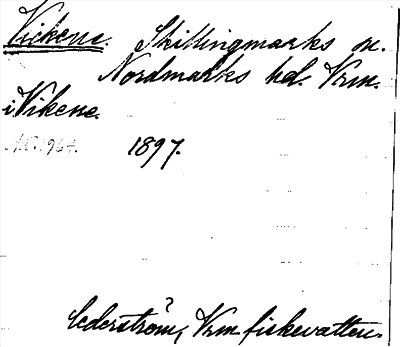 Vickene. Skillingmarks sn.
Nordmarks hd. Vrm.
i Vikene.
A.E. 1964. 1897.
?
Cederström, Vrm fiskevatten.